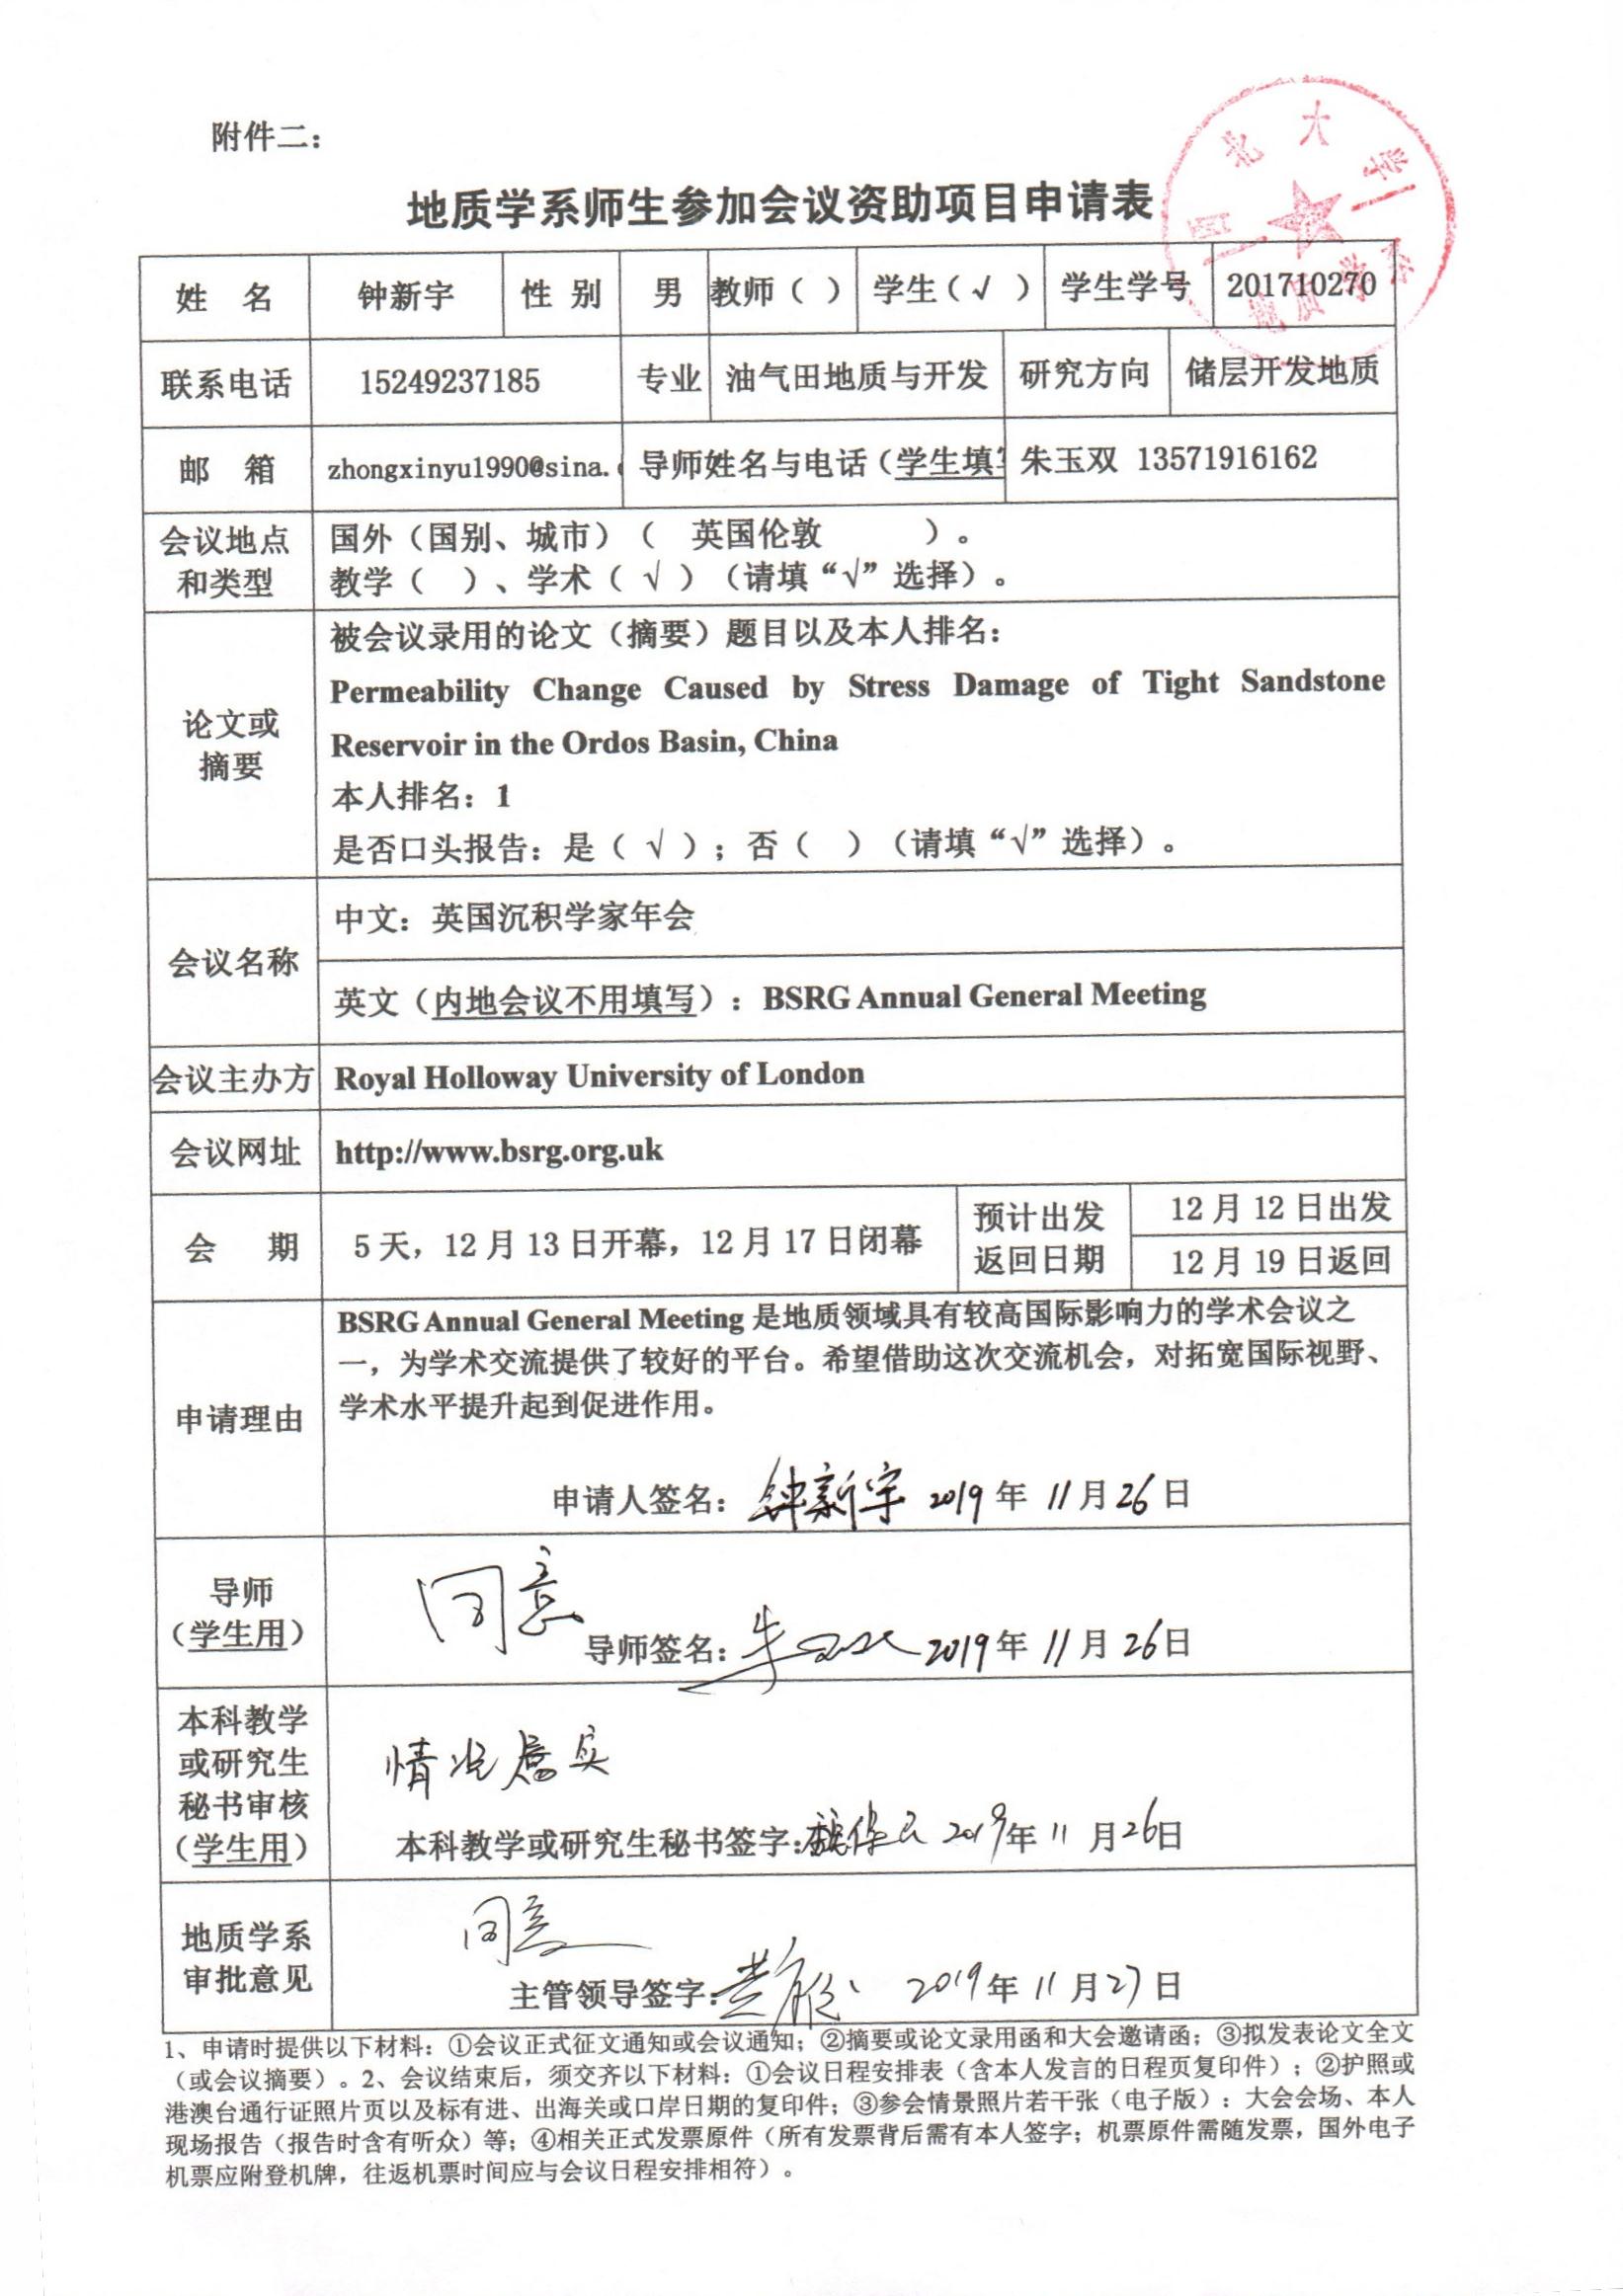 附件二：
西北大学
地质学系
地质学系师生参加会议资助项目申请表
姓 名 钟新宇 性 别 男 教师（ ） 学生（√ ） 学生学号 201710270
联系电话 15249237185 专业 油气田地质与开发 研究方向 储层开发地质
邮 箱 zhongxinyu1990@sina. 导师姓名与电话（学生填 朱玉双 13571916162
会议地点
和类型
国外（国别、城市）（ 英国伦敦 ）。
教学（ ）、学术（ √ ）（请填“√”选择）。
论文或
摘要
被会议录用的论文（摘要）题目以及本人排名：
Permeability Change Caused by Stress Damage of Tight Sandstone
Reservoir in the Ordos Basin, China
本人排名：1
是否口头报告：是（ √ ）；否（ ）（请填“√”选择）。
会议名称
中文：英国沉积学家年会
英文（内地会议不用填写）：BSRG Annual General Meeting
会议主办方 Royal Holloway University of London
会议网址 http://www.bsrg.org.uk
会 期 5 天，12 月 13 日开幕，12 月 17 日闭幕
预计出发
返回日期
12 月 12 日出发
12 月 19 日返回
申请理由
BSRG Annual General Meeting 是地质领域具有较高国际影响力的学术会议之
一，为学术交流提供了较好的平台。希望借助这次交流机会，对拓宽国际视野、
学术水平提升起到促进作用。
申请人签名：钟新宇 2019 年 11 月 26 日
导师
（学生用）
同意
导师签名：朱玉双 2019 年 11 月 26 日
本科教学
或研究生
秘书审核
（学生用）
情况属实
本科教学或研究生秘书签字： 2019 年 11 月 26 日
地质学系
审批意见
同意
主管领导签字： 2019 年 11 月 27 日
1、申请时提供以下材料：①会议正式征文通知或会议通知；②摘要或论文录用函和大会邀请函；③拟发表论文全文
（或会议摘要）。2、会议结束后，须交齐以下材料：①会议日程安排表（含本人发言的日程页复印件）；②护照或
港澳台通行证照片页以及标有进、出海关或口岸日期的复印件；③参会情景照片若干张（电子版）：大会会场、本人
现场报告（报告时含有听众）等；④相关正式发票原件（所有发票背后需有本人签字；机票原件需随发票，国外电子
机票应附登机牌，往返机票时间应与会议日程安排相符）。